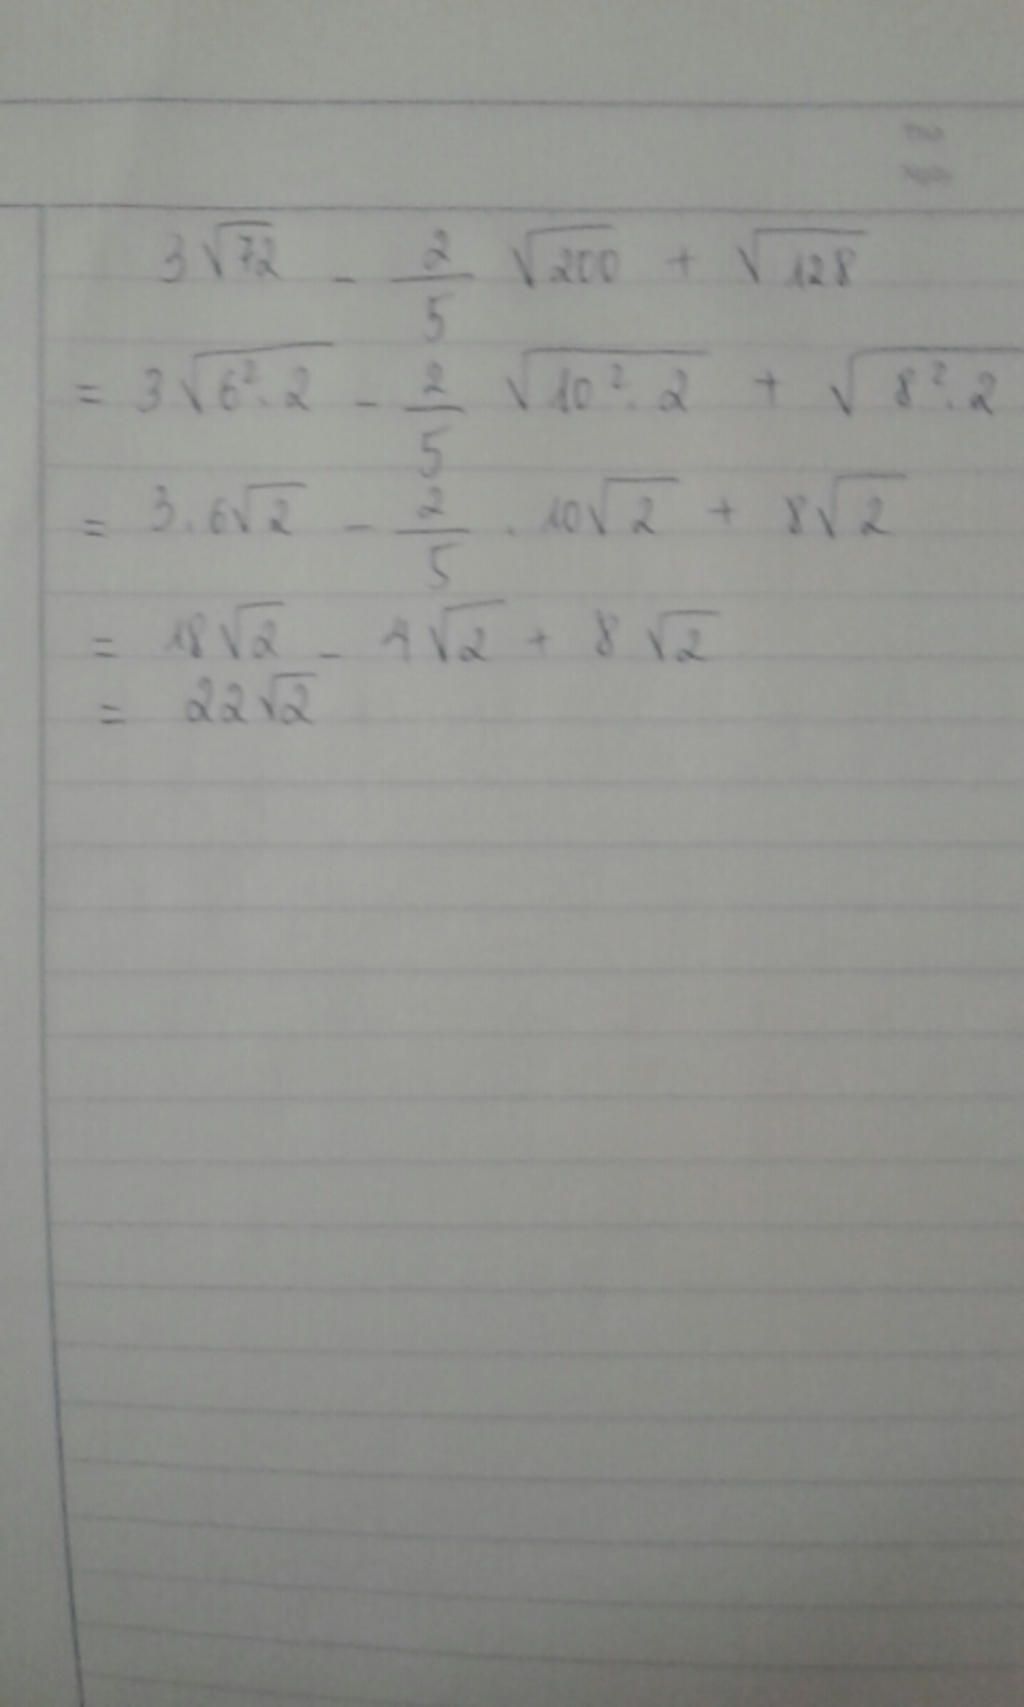 3√72 - 2/5 √200 + √128
= 3√6².2 - 2/5 √10².2 + √8².2
= 3.6√2 - 2/5 . 10√2 + 8√2
= 18√2 - 4√2 + 8√2
= 22√2